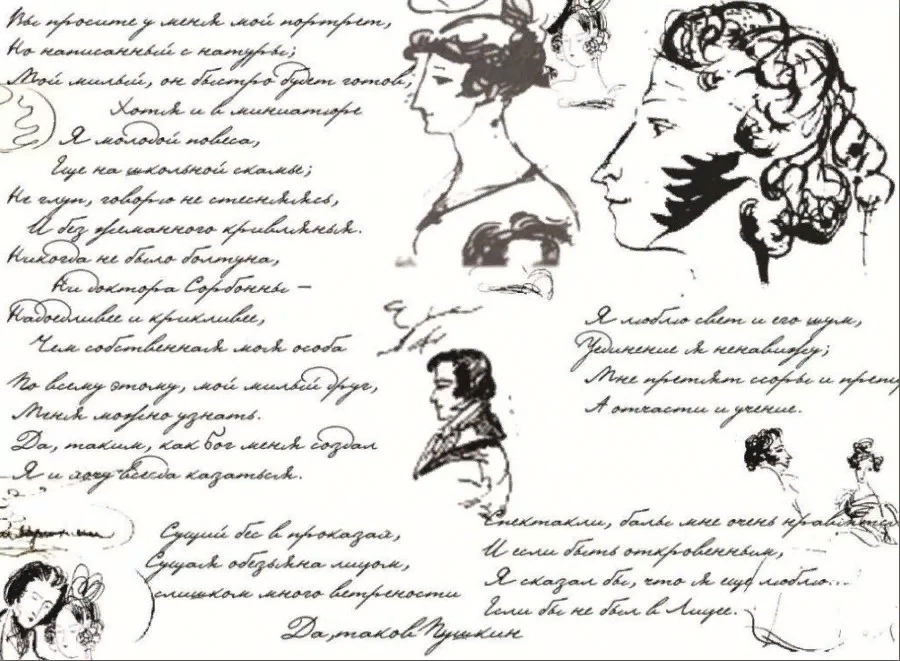 Вы просите у меня мой портрет,
Но написанный с натуры;
Мой милый, он быстро будет готов,
Хотя и в миниатюре
Я молодой повеса,
Еще на школьной скамье;
Не глуп, говорю не стесняясь,
И без жеманного кривлянья.
Никогда не было болтуна,
Ни доктора Сорбонны —
Надоедливее и крикливее,
Чем собственная моя особа
По всему этому, мой милый друг,
Меня можно узнать.
Да, таким, как Бог меня создал
Я и хочу всегда казаться.
Сущий бес в проказах,
Сущая обезьяна лицом,
слишком много ветрености
Да, таков Пушкин
Я люблю свет и его шум,
Уединение я ненавижу;
Мне претят ссоры и препи
А отчасти и учение.
Спектакли, балы мне очень нравятся
И если быть откровенным,
Я сказал бы, что я еще люблю...
Если бы не был в Лицее.